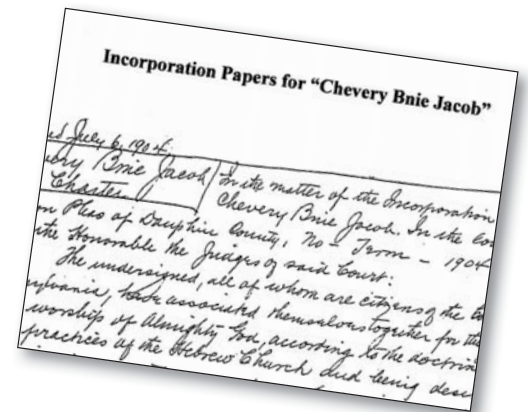 Incorporation Papers for “Chevery Bnie Jacob”
July 6, 1904.
very Bnie Jacob
Charter
In the matter of the Incorporation
Chevery Bnie Jacob. In the Co
n Pleas of Dauphin County, No - Term - 1904
the Honorable the Judges of said Court:
The undersigned, all of whom are citizens of the
sylvania, have associated themselves together for the
worship of Almighty God, according to the doctrin
practices of the Hebrew Church and being desi